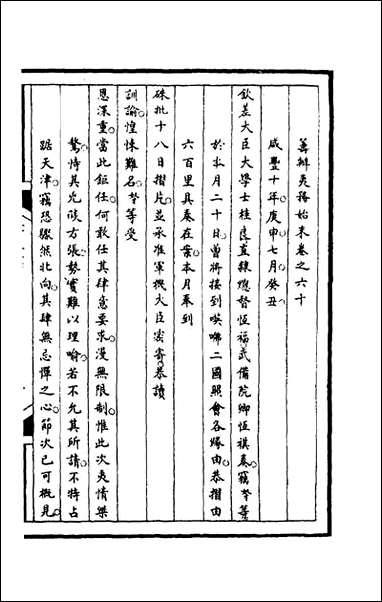 籌辦夷務始末卷之六十
咸豐十年庚申七月癸丑
欽差大臣大學士桂良直隸總督恆福武備院卿恆祺奏竊奴等
於本月二十日曾將接到𠸄咈二國照會各緣由恭摺由
六百里具奏在案本月奉到
硃批十八日摺片並承准軍機大臣密寄恭讀
訓諭惶悚難名奴等受
恩深重當此鉅任何敢任其肆意要求漫無限制惟此次夷情桀
驁恃其兇燄方張勢實難以理喻若不允其所請不特占
踞天津竊恐驟然北向其肆無忌憚之心節次已可概見